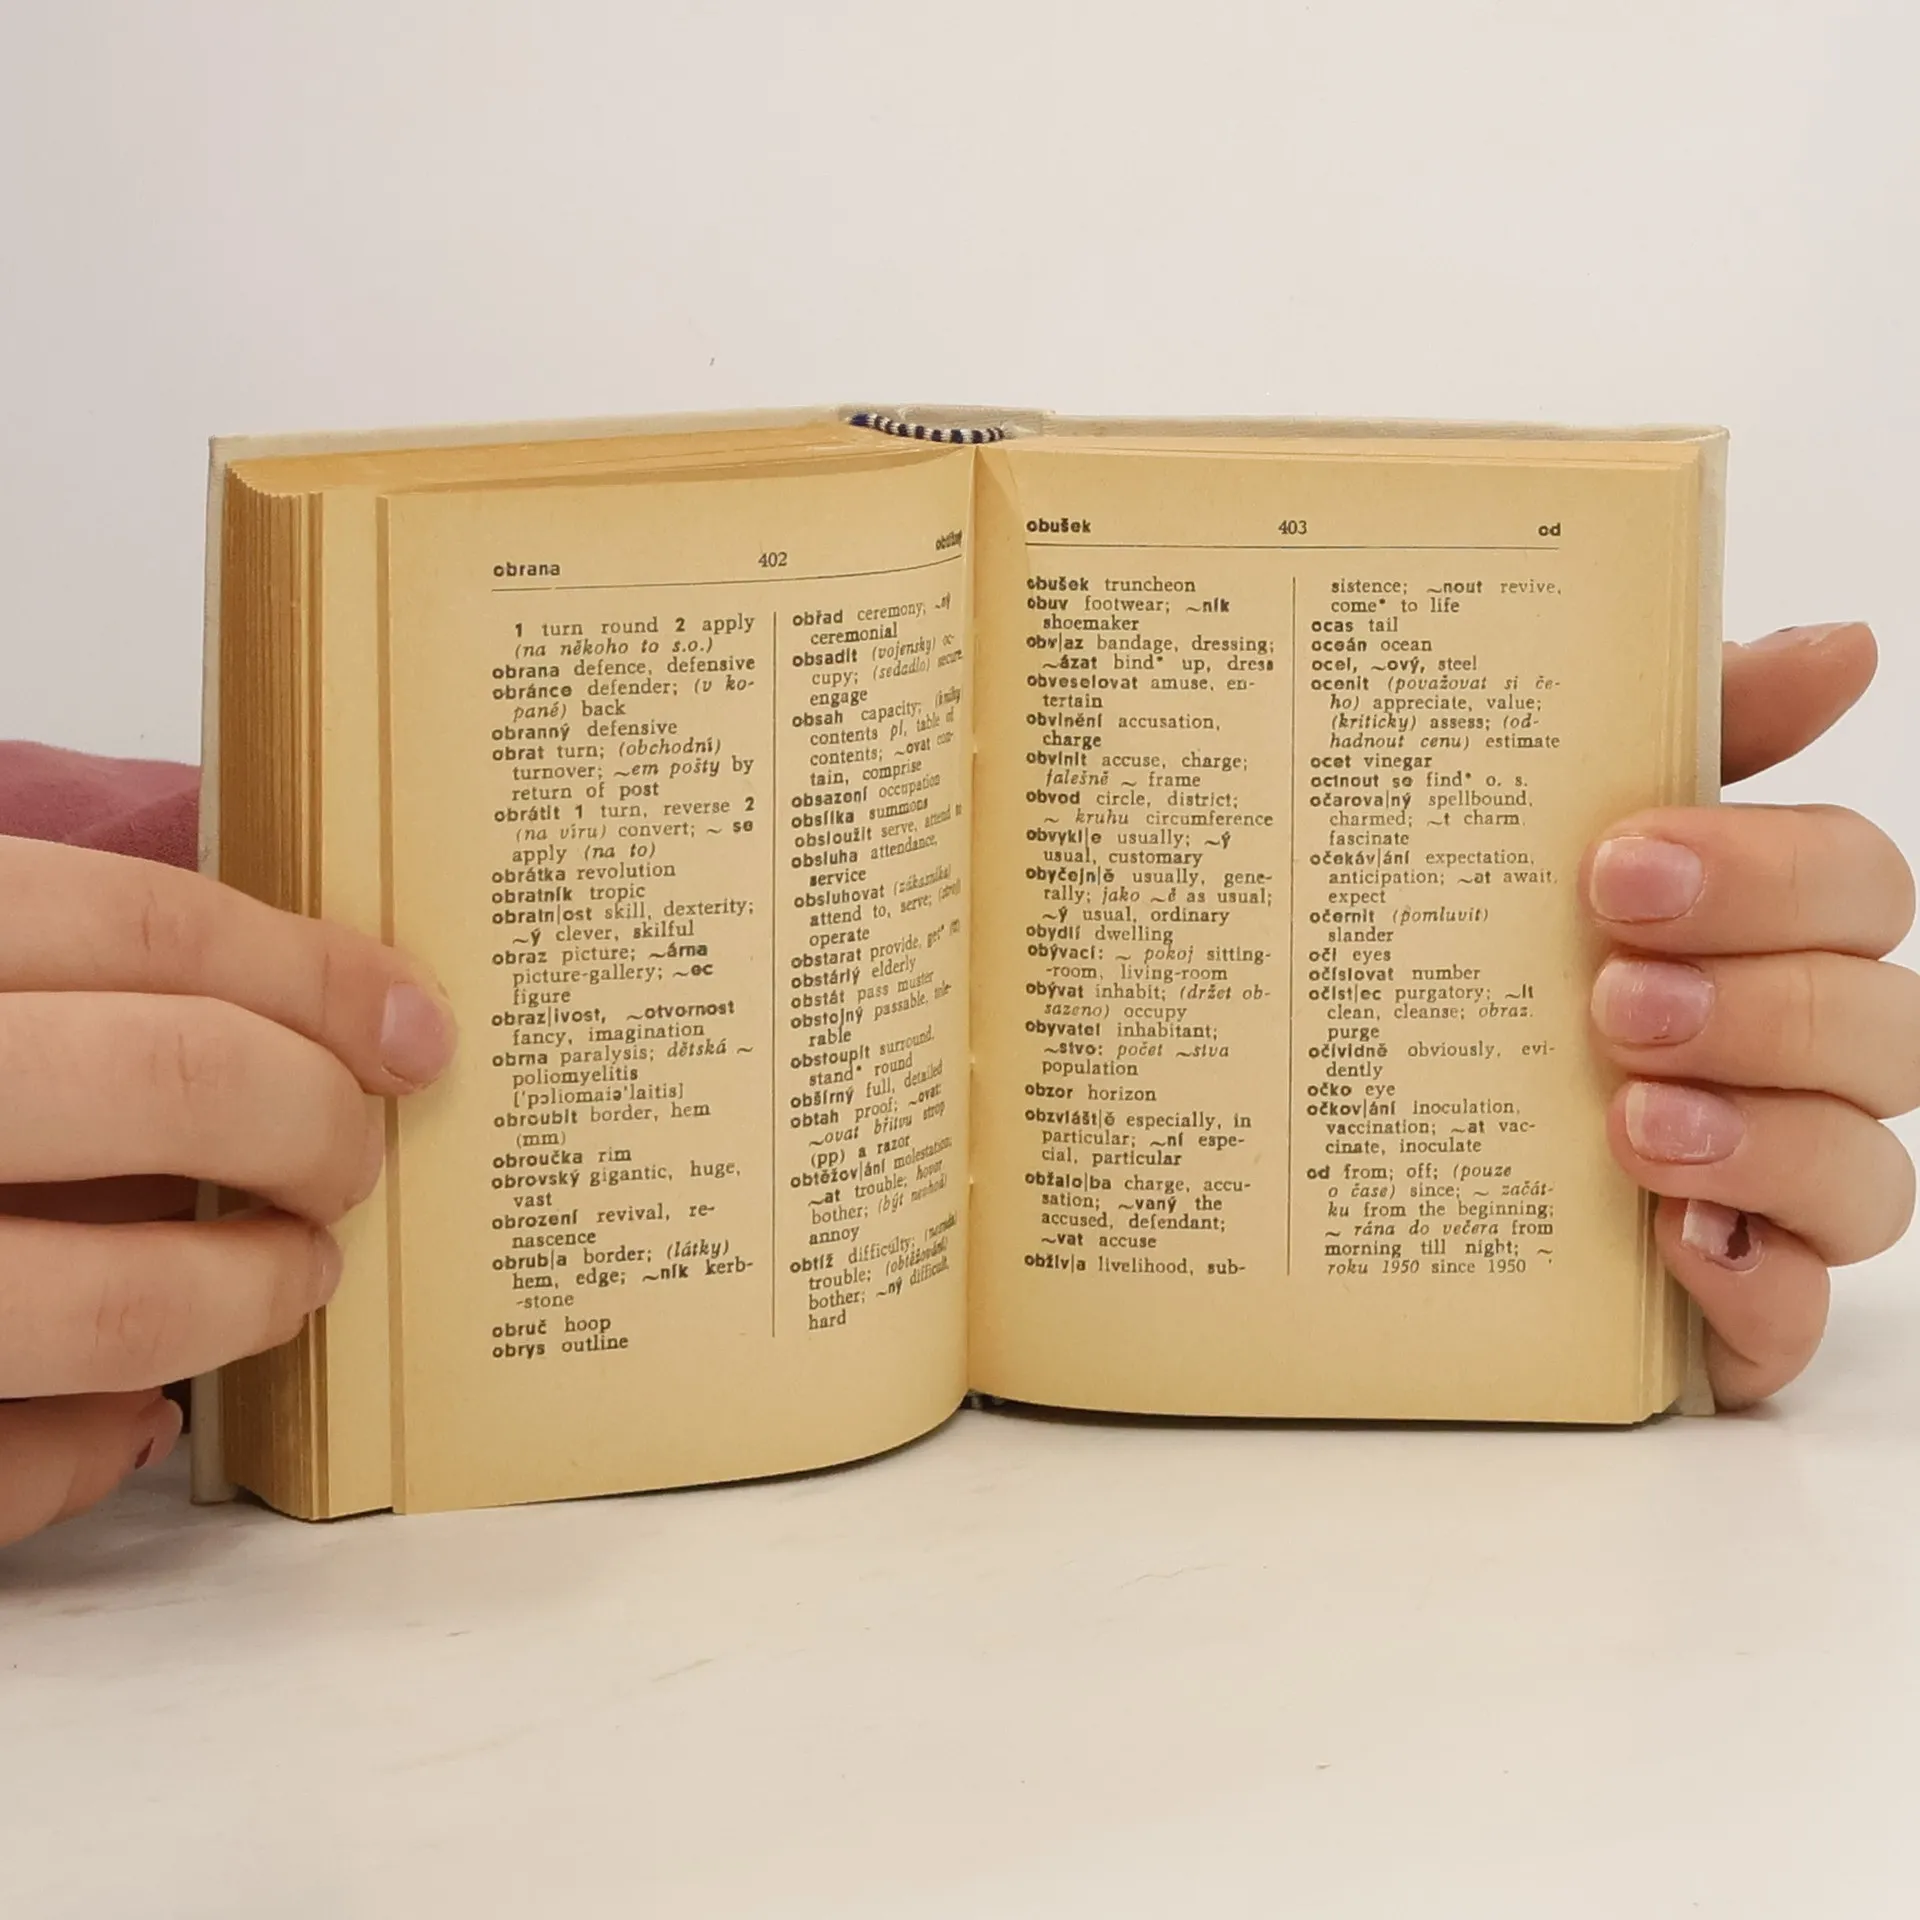 obrana 402 obtížný
1 turn round 2 apply
(na někoho to s.o.)
obrana defence, defensive
obránce defender; (v ko-
pané) back
obranný defensive
obrat turn; (obchodní)
turnover; ~em pošty by
return of post
obrátit 1 turn, reverse 2
(na víru) convert; ~ se
apply (na to)
obrátka revolution
obratník tropic
obratn|ost skill, dexterity;
~ý clever, skilful
obraz picture; ~árna
picture-gallery; ~ec
figure
obraz|ivost, ~otvornost
fancy, imagination
obrna paralysis; dětská ~
poliomyelitis
['pɔliomaiə'laitis]
obroubit border, hem
(mm)
obroučka rim
obrovský gigantic, huge,
vast
obrození revival, re-
nascence
obrub|a border; (látky)
hem, edge; ~ník kerb-
-stone
obruč hoop
obrys outline
obřad ceremony; ~ný
ceremonial
obsadit (vojensky) oc-
cupy; (sedadlo) secure,
engage
obsah capacity; (knihy)
contents pl, table of
contents; ~ovat con-
tain, comprise
obsazení occupation
obsílka summons
obsloužit serve, attend to
obsluha attendance,
service
obsluhovat (zákazníka)
attend to, serve; (stroj)
operate
obstarat provide, get* (m)
obstárlý elderly
obstát pass muster
obstojný passable, tole-
rable
obstoupit surround,
stand* round
obšírný full, detailed
obtah proof; ~ovat:
~ovat břitvu strop
(pp) a razor
obtěžov|ání molestation;
~at trouble; hover,
bother; (být nevhod)
annoy
obtíž difficulty; (nesnáz)
trouble; (obtěžování)
bother; ~ný difficult,
hard
obušek 403 od
obušek truncheon
obuv footwear; ~ník
shoemaker
obv|az bandage, dressing;
~ázat bind* up, dress
obveselovat amuse, en-
tertain
obvinění accusation,
charge
obvinit accuse, charge;
falešně ~ frame
obvod circle, district;
~ kruhu circumference
obvykl|e usually; ~ý
usual, customary
obyčejn|ě usually, gene-
rally; jako ~ě as usual;
~ý usual, ordinary
obydlí dwelling
obývací: ~ pokoj sitting-
-room, living-room
obývat inhabit; (držet ob-
sazeno) occupy
obyvatel inhabitant;
~stvo: počet ~stva
population
obzor horizon
obzvlášt|ě especially, in
particular; ~ní espe-
cial, particular
obžalo|ba charge, accu-
sation; ~vaný the
accused, defendant;
~vat accuse
obživ|a livelihood, sub-
sistence; ~nout revive,
come* to life
ocas tail
oceán ocean
ocel, ~ový, steel
ocenit (považovat si če-
ho) appreciate, value;
(kriticky) assess; (od-
hadnout cenu) estimate
ocet vinegar
octnout se find* o. s.
očarova|ný spellbound,
charmed; ~t charm,
fascinate
očekáv|ání expectation,
anticipation; ~at await,
expect
očernit (pomluvit)
slander
oči eyes
očíslovat number
očist|ec purgatory; ~it
clean, cleanse; obraz.
purge
očividně obviously, evi-
dently
očko eye
očkov|ání inoculation,
vaccination; ~at vac-
cinate, inoculate
od from; off; (pouze
o čase) since; ~ začát-
ku from the beginning;
~ rána do večera from
morning till night; ~
roku 1950 since 1950